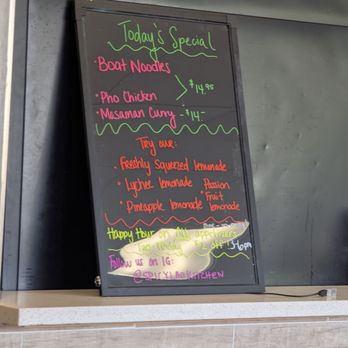 Today's Special
• Boat Noodles
> $14.95
• Pho Chicken
• Masaman Curry - $14-
Try our:
• Freshly Squeezed lemonade
• Lychee lemonade
• Passion Fruit lemonade
• Pineapple lemonade
Happy Hour on All appetizers
$2 off 3-6pm
Follow us on IG:
@SPICYLAOKITCHEN